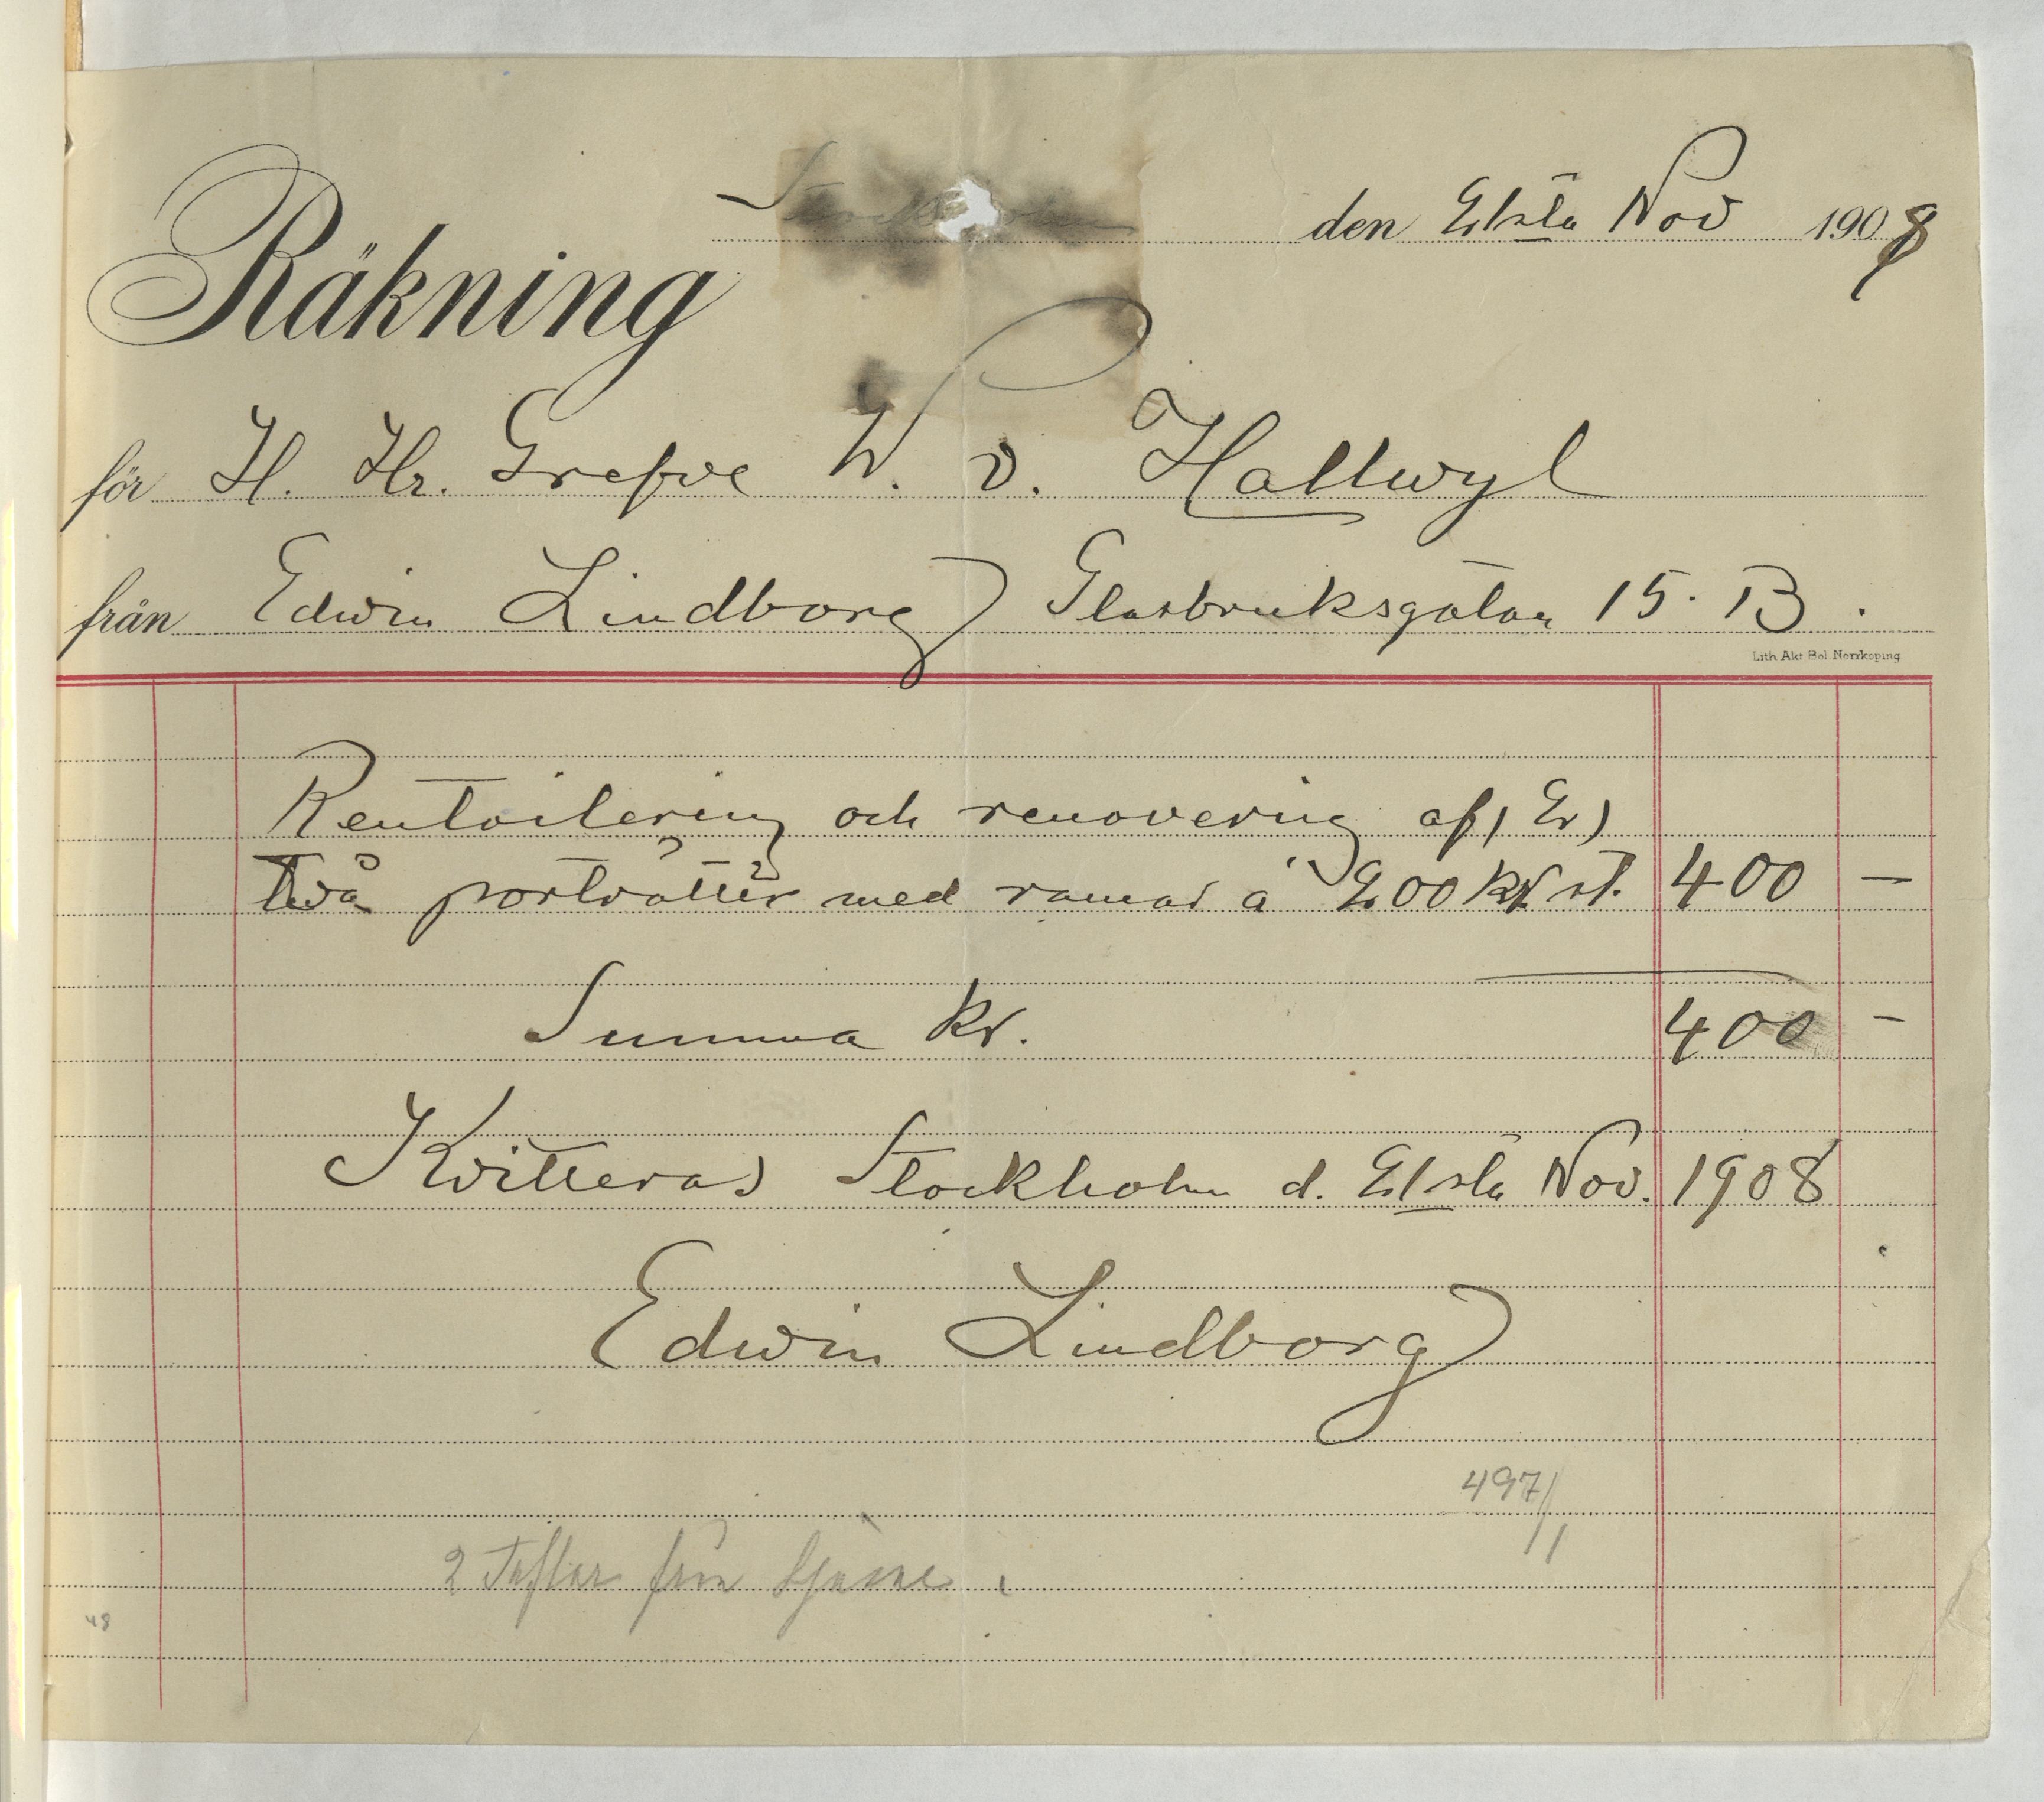 Stockholm den 21sta Nov 1908
Räkning
för H. Hr. Grefve W. v. Hallwyl
från Edwin Lindborg Glasbruksgatan 15. B.
Lith. Akt. Bol. Norrköping
Rentoilering och renovering af (2)
två porträtter med ramar á 200 kr st. 400 —
Summa kr. 400 -
Kvitteras Stockholm d. 21sta Nov. 1908
Edwin Lindborg
497//1
2 Taflor från
48